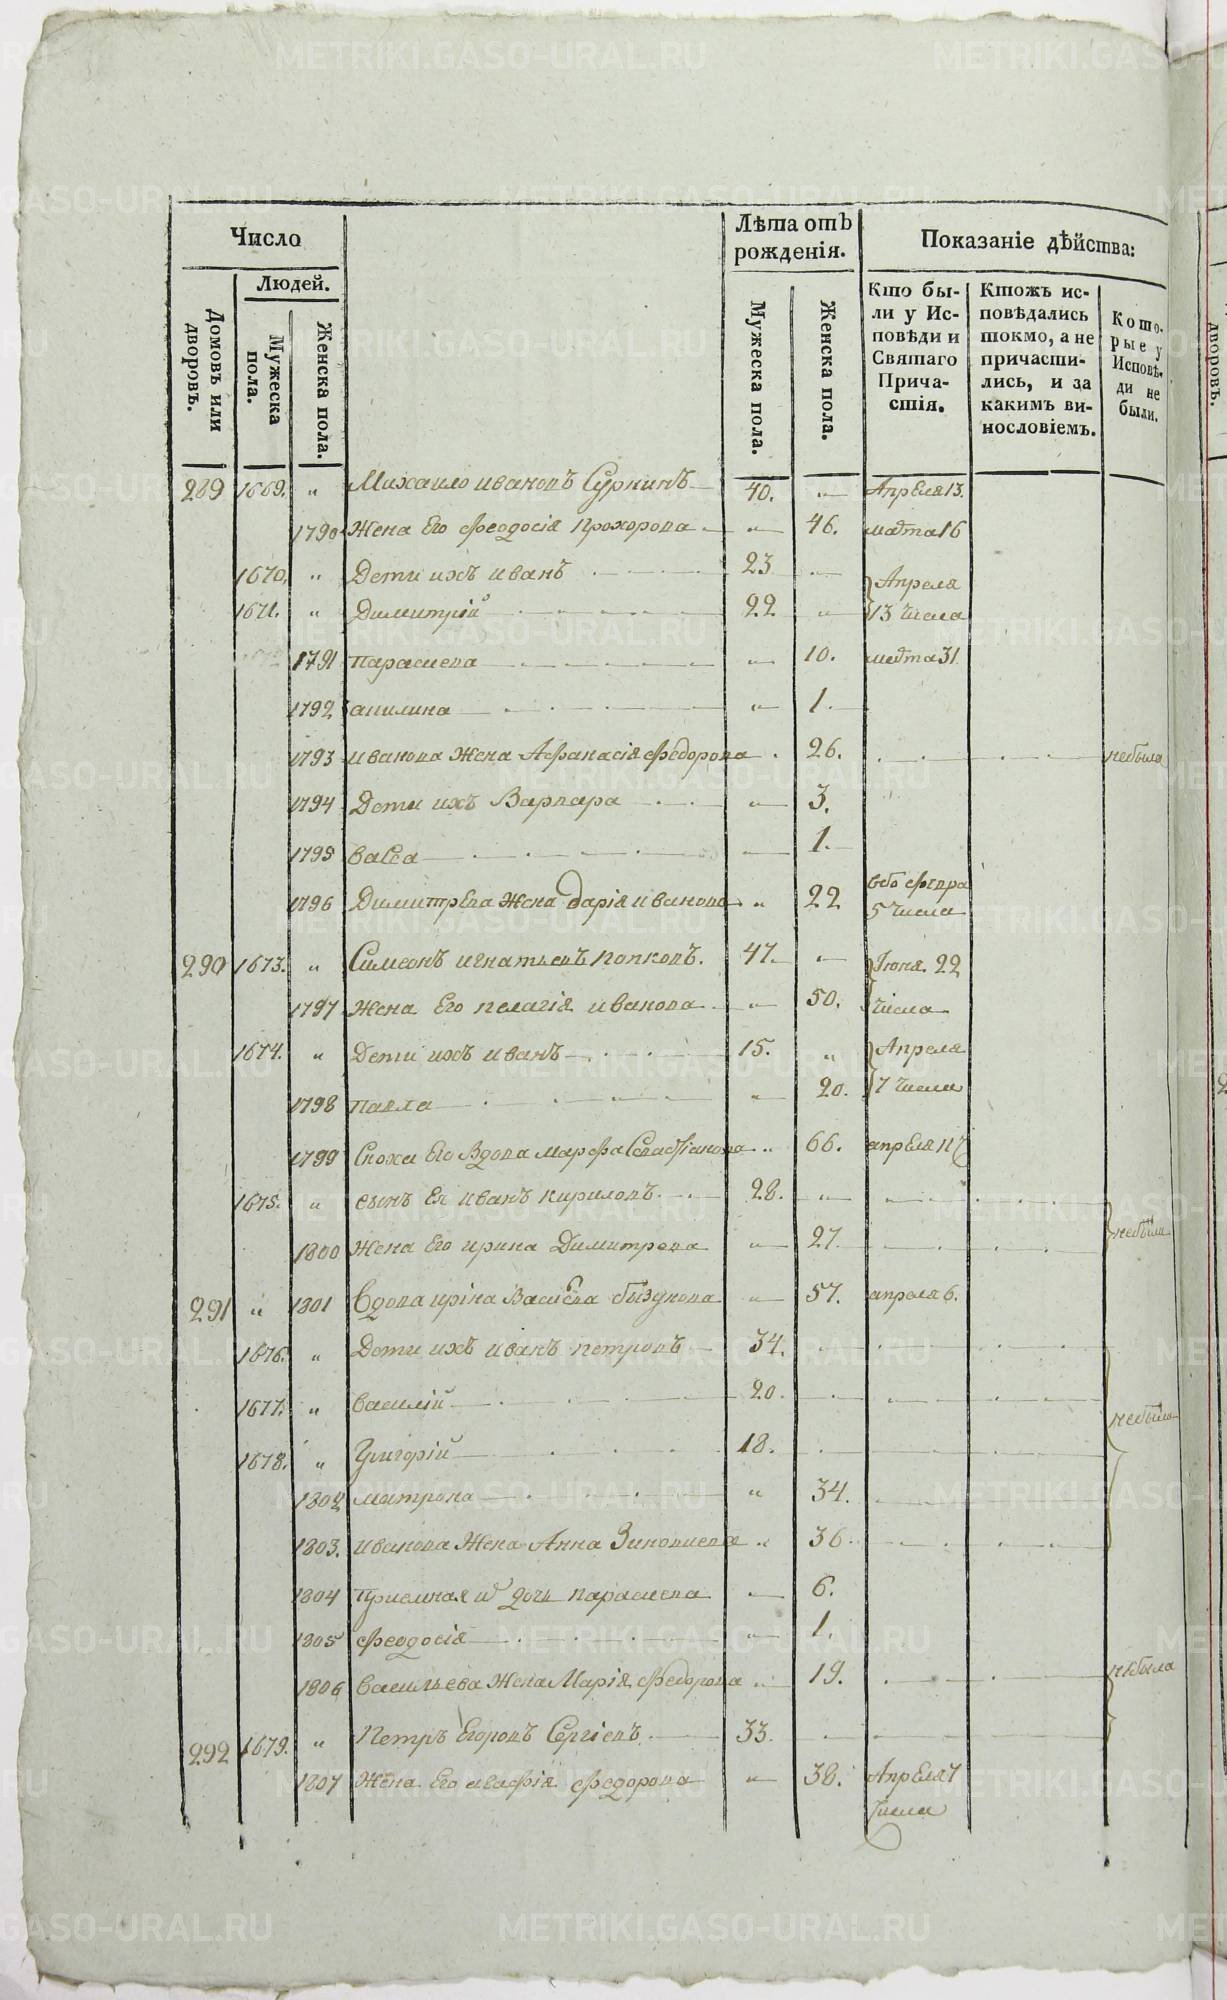 Число
Лѣта отъ рожденія.
Показаніе дѣйства:
Людей.
Домовъ или дворовъ.
Мужеска пола.
Женска пола.
Мужеска пола.
Женска пола.
Кто бы-
ли у Ис-
повѣди и
Святаго
Прича-
стія.
Ктожъ ис-
повѣдались
токмо, а не
причасти-
лись, и за
какимъ ви-
нословіемъ.
Кото-
рые у
Исповѣ-
ди не
были.
дворовъ.
289 1669. „ Михаило ивановъ Суркинъ 40. „ Апреля 13.
1790 Жена Его феодосія Прохорова „ 46. марта 16
1670. „ Дети ихъ иванъ 23 Апреля
1671. „ Димитрій 22 „ 13 числа
1791 параскева „ 10. марта 31
1792 акилина „ 1.
1793 иванова Жена Афанасія федорова 26. небыла
1794 Дети ихъ Варвара „ 3.
1795 васса 1.
1796 Димитрева Жена дарія иванова „ 22 февра
5 числа
290 1673. „ Симеонъ игнатьевъ попковъ. 47. „ Июня 22
1797 Жена Его пелагія иванова „ 50. числа
1674. „ Дети ихъ иванъ 15. „ Апреля
1798 павла „ 20. 7 числа
1799 Сноха Его Вдова марфа Севастіанова „ 66. апреля
1675. „ сынъ Ея иванъ кириловъ 28. „
1800 Жена Его ирина Димитрева „ 27. небыли
291 „ 1801 Вдова иріна Василева бызунова „ 57. апреля 6.
1676. „ Дети ихъ иванъ петровъ 34.
1677. „ василій 20. небыли
1678. „ Григорій 18.
1802 матрона „ 34.
1803. иванова Жена Анна Зиновиева „ 36.
1804 приемная дочь параскева 6.
1805 феодосія „ 1.
1806 васильева Жена Марія федорова „ 19. небыла
292 1679. „ Петръ Егоровъ Сергіевъ 33.
1807 Жена Его агафія федорова „ 38. Апреля 7
числа
METRIKI.GASO-URAL.RU